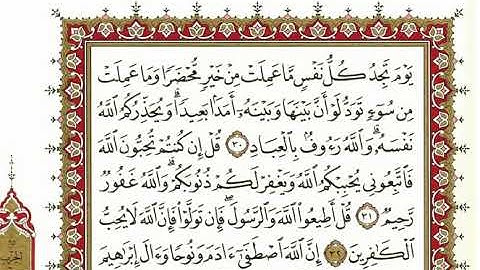 يَوْمَ تَجِدُ كُلُّ نَفْسٍ مَّا عَمِلَتْ مِنْ خَيْرٍ مُّحْضَرًا وَمَا عَمِلَتْ
مِن سُوٓءٍ تَوَدُّ لَوْ أَنَّ بَيْنَهَا وَبَيْنَهُۥٓ أَمَدَۢا بَعِيدًا ۗ وَيُحَذِّرُكُمُ ٱللَّهُ
نَفْسَهُۥ ۗ وَٱللَّهُ رَءُوفُۢ بِٱلْعِبَادِ ٣٠ قُلْ إِن كُنتُمْ تُحِبُّونَ ٱللَّهَ
فَٱتَّبِعُونِى يُحْبِبْكُمُ ٱللَّهُ وَيَغْفِرْ لَكُمْ ذُنُوبَكُمْ ۗ وَٱللَّهُ غَفُورٌ
رَّحِيمٌ ٣١ قُلْ أَطِيعُوا۟ ٱللَّهَ وَٱلرَّسُولَ ۖ فَإِن تَوَلَّوْا۟ فَإِنَّ ٱللَّهَ لَا يُحِبُّ
ٱلْكَٰفِرِينَ ٣٢ إِنَّ ٱللَّهَ ٱصْطَفَىٰٓ ءَادَمَ وَنُوحًا وَءَالَ إِبْرَٰهِيمَ